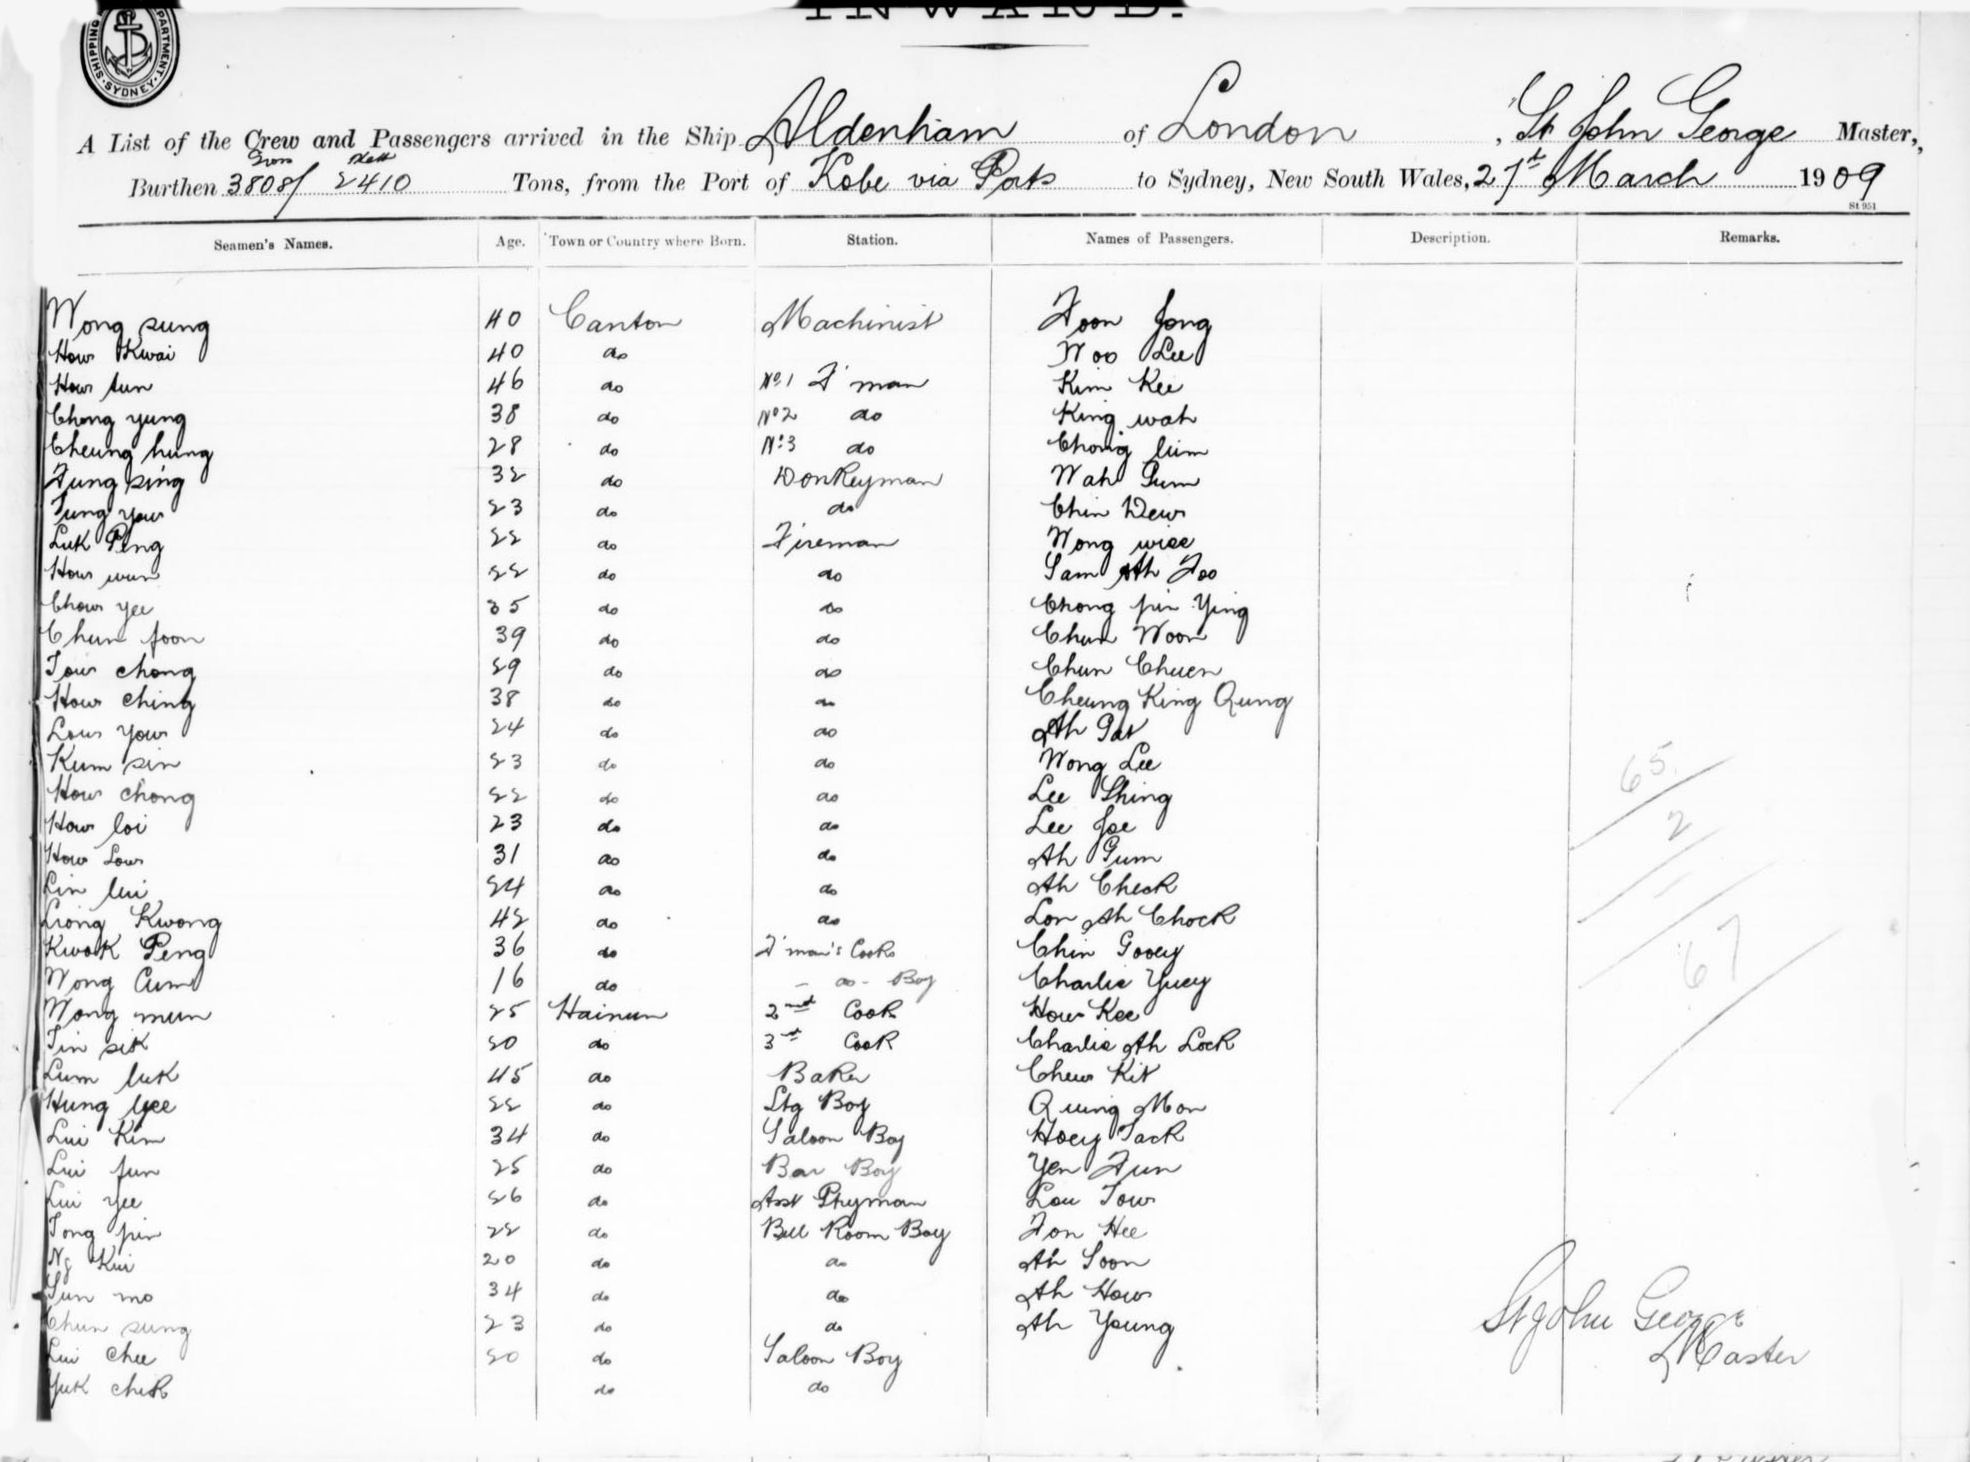 INWARD.
SHIPPING DEPARTMENT. SYDNEY
A List of the Crew and Passengers arrived in the Ship Aldenham of London, St John George Master,
Gross Nett
Burthen 3808/ 2410 Tons, from the Port of Kobe via Ports to Sydney, New South Wales, 27th March 1909
St 951
Seamen's Names. Age. Town or Country where Born. Station. Names of Passengers. Description. Remarks.
Wong sung 40 Canton Machinist Foon Jong
How Kwai 40 do Woo Lee
How tun 46 do No. 1 F'man Kim Kee
Chong yung 38 do No 2 do King wah
Cheung hung 28 do No. 3 do Chong lim
Fung sing 32 do Donkeyman Wah Gum
Fung yow 23 do do Chin Dew
Luk Peng 22 do Fireman Wong wise
How wun 22 do do Sam Ah Foo
Chow yee 35 do do Chong pin Ying
Chun foon 39 do do Chun Woon
Tow chong 29 do do Chun Chuen
How ching 38 do do Cheung King Qung
Low yow 24 do do Ah Pat
Kum sin 23 do do Wong Lee
How chong 22 do do Lee Shing
65
How loi 23 do do Lee Joe
2
How Low 31 do do Ah Gum
Lin lui 24 do do Ah Check
Liong Kwong 42 do do Lon Ah Chock
Kwok Peng 36 do F'man's Cook Chin Gooey
67
Wong Cum 16 do - do - Boy Charlie Yuey
Wong mun 25 Hainun 2nd Cook How Kee
Tin sik 20 do 3rd Cook Charlie Ah Lock
Lum luk 45 do Baker Chew Kit
Hung yee 22 do Stg Boy Quing Mon
Lui Kim 34 do Saloon Boy Hoey Jack
Lui fun 25 do Bar Boy Yen Fun
Lui yee 26 do Asst Ptryman Lou Tow
Tong pin 22 do Bell Room Boy Fon Hee
Ng Kui 20 do do Ah Soon
Sun mo 34 do do Ah How
Chun sung 23 do do Ah Young
St John George
Master
Lui Chee 20 do Saloon Boy
Yuk chek do do